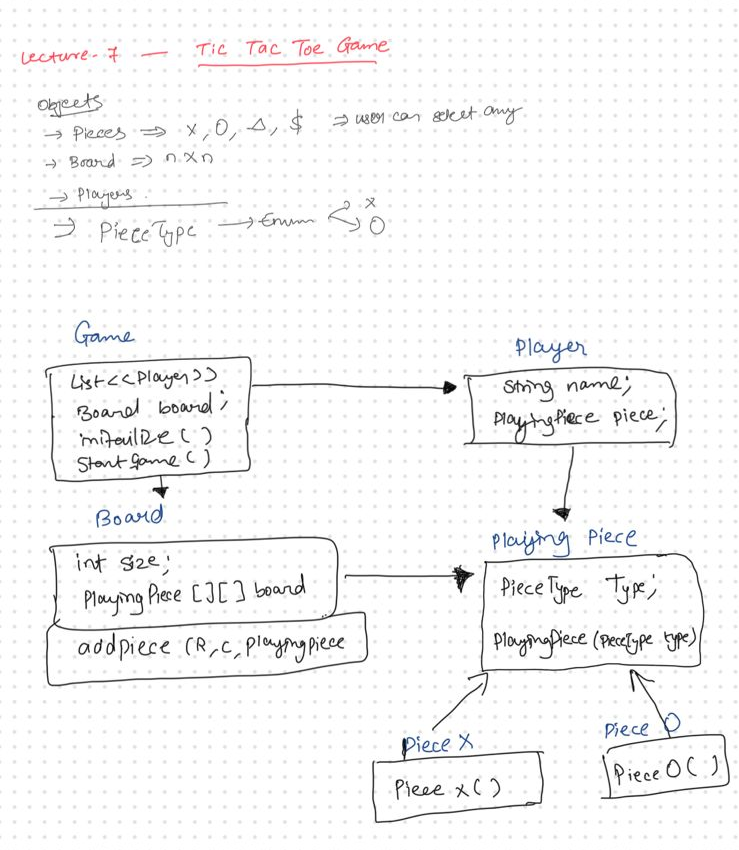 Lecture-7 — Tic Tac Toe Game
Objects
→ Pieces ⇒ X, O, Δ, $ ⇒ user can select any
→ Board ⇒ n x n
→ Players.
⇒ PieceType → Enum < X
O
Game
List<<Player>>
Board board;
initailize()
StartGame()
Player
String name;
PlayingPiece piece;
Board
int size;
PlayingPiece [][] board
addpiece (R, C, Playingpiece
Playing Piece
PieceType Type;
PlayingPiece (PieceType type)
Piece X
Piece X()
Piece O
Piece O()